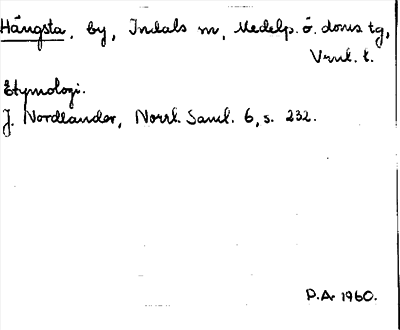 Hängsta, by, Indals sn, Medelp. ö. doms tg,
Vrnl. l.
Etymologi.
J. Nordlander, Norrl. Saml. 6, s. 232.
P.A. 1960.